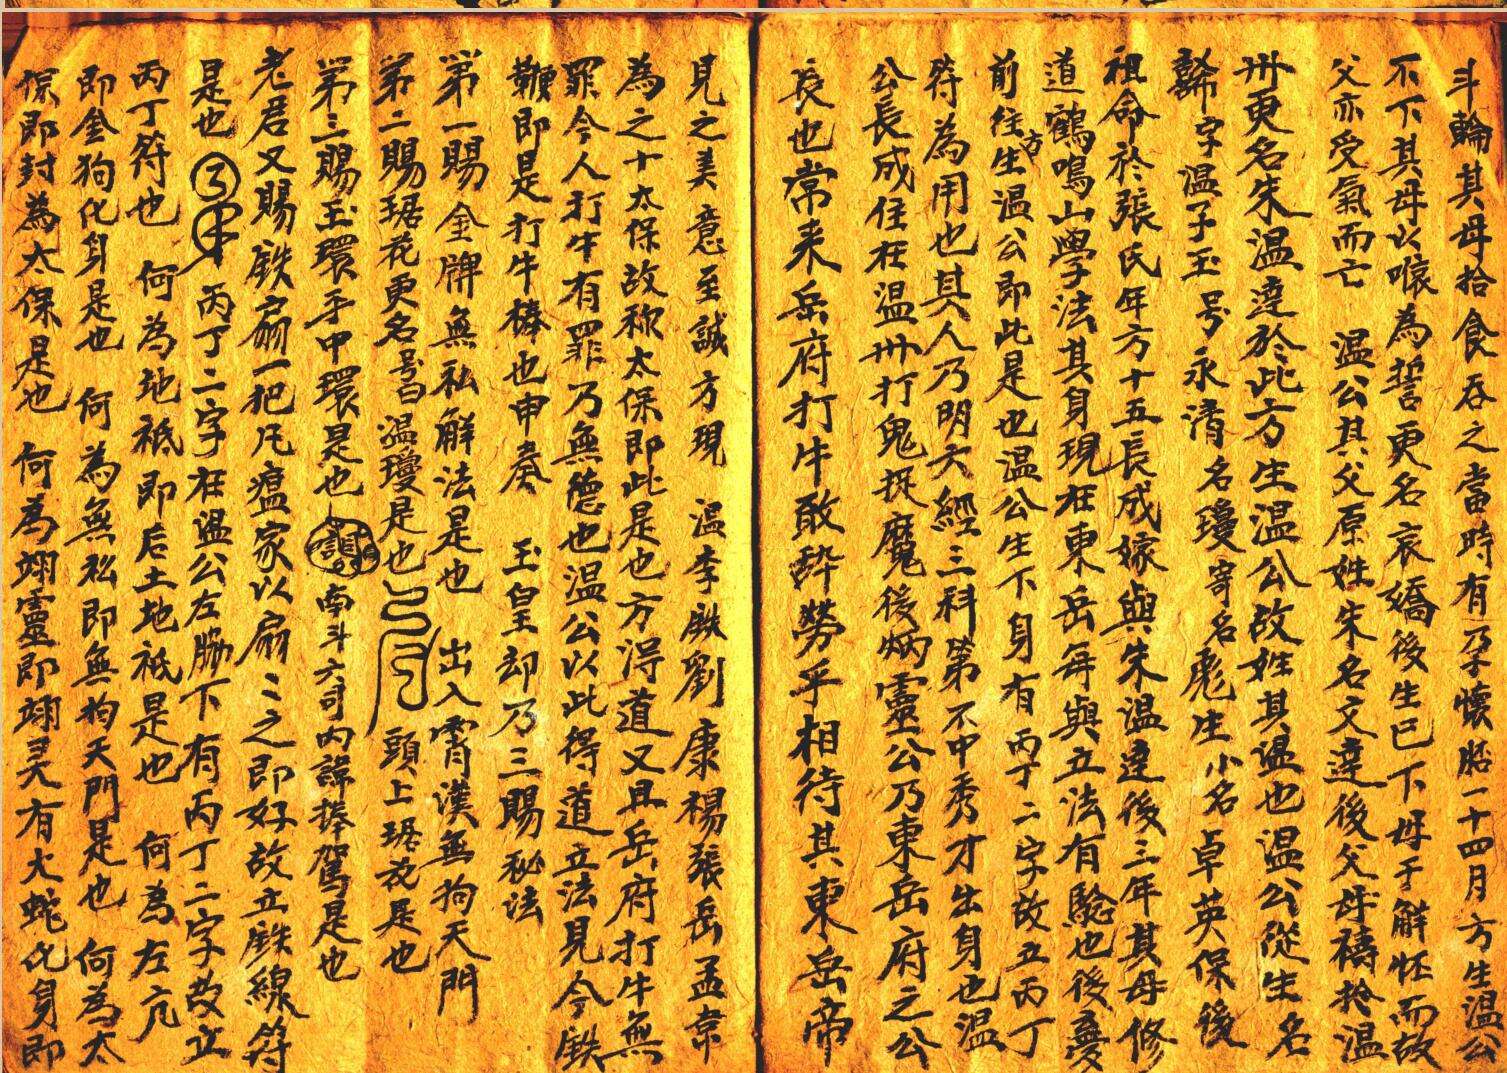 斗輪其母拾食吞之當時有孕懷胎一十四月方生溫公
不下其母以喉為誓更名哀嬌後生已下母子解怪而故
父亦受氣而亡 溫公其父原姓朱名文達後父母禱於溫
州更名朱溫達於此方生溫公改姓其溫也溫公從生名
諱字溫子玉号永清名瓊寄名彪生小名卓英保後
祖命於張氏年方十五長成嫁與朱溫達後三年其母修
道鶴鳴山學法其身現在東岳每與立法有驗也後憂
前往方生溫公即此是也溫公生下身有丙丁二字故五丙丁
符為用也其人乃明大經三科第不中秀才出身也溫
公長成住在溫州打鬼捉魔後炳靈公乃東岳府之公
長也常来岳府打牛敢醉勞乎相待其東岳帝
見之美意至誠方現 溫李鉄劉康楊張岳孟韋
為之十太保故称太保即此是也方得道又且岳府打牛無
罪今人打牛有罪乃無德也溫公以此得道立法見今鉄
鞭即是打牛棒也申奏 玉皇却乃三賜秘法
第一賜金牌無私解法是也 出入霄漢無拘天門
第二賜琚花更名号曰溫瓊是也 頭上琚花是也
第三賜玉環手中環是也 南斗六司内諱捧駕是也
老君又賜鉄扇一把凡瘟家以扇〻之即好故立鉄線符
是也 丙丁二字在溫公左脇下有丙丁二字故立
丙丁符也 何為地祇即后土地祇是也 何為左亢
即金狗化身是也 何為無私即無拘天門是也 何為太
保即封為太保是也 何為翊靈即翊灵有大蛇化身即